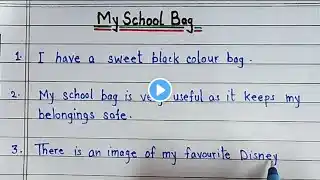 My School Bag
1. I have a sweet black colour bag.
2. My school bag is very useful as it keeps my
belongings safe.
3. There is an image of my favourite Disney